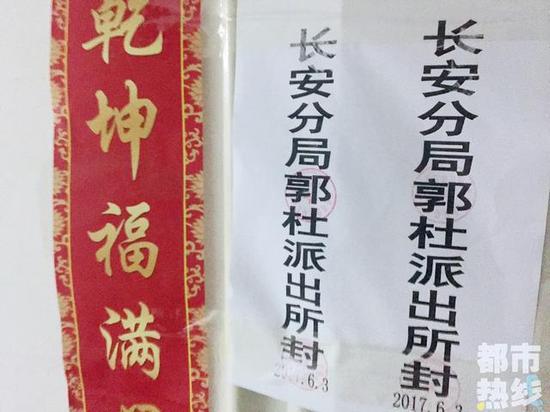 乾坤福满
长安分局郭杜派出所封
6.3
长安分局郭杜派出所封
2017.6.
都市
热线